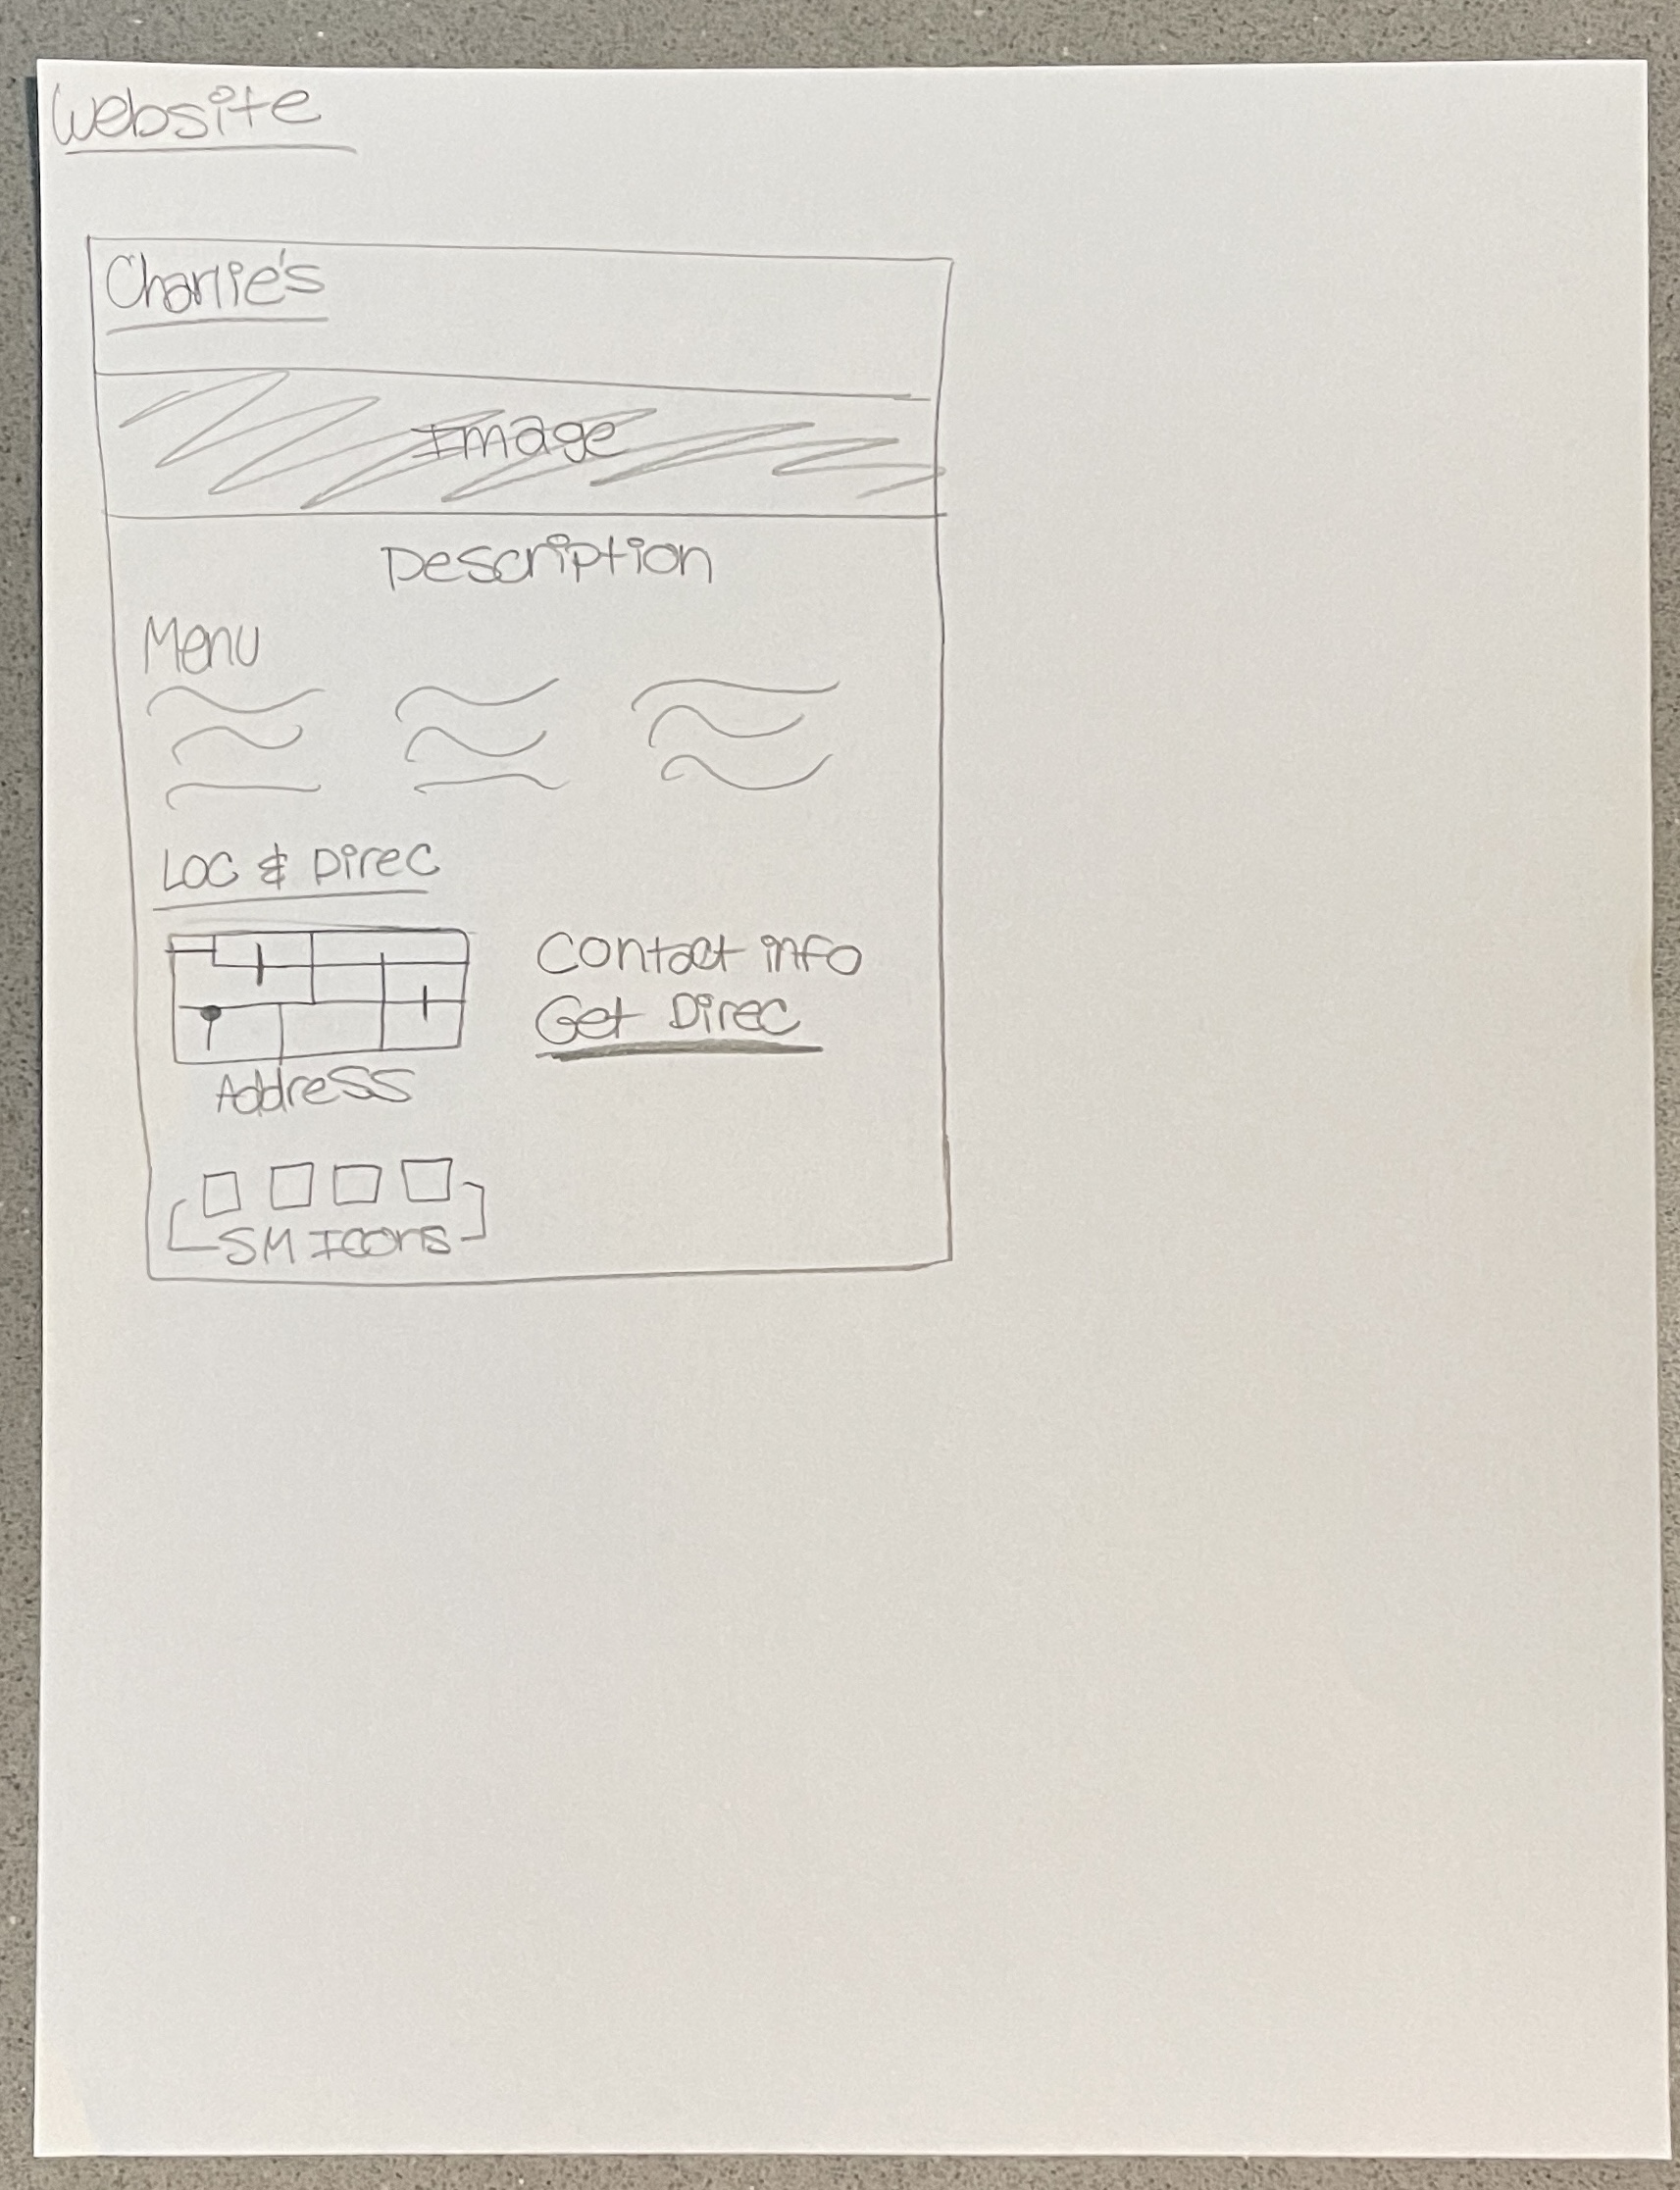 Website
Charlie's
Image
Description
Menu
Loc & Direc
Contact info
Get Direc
Address
SM Icons